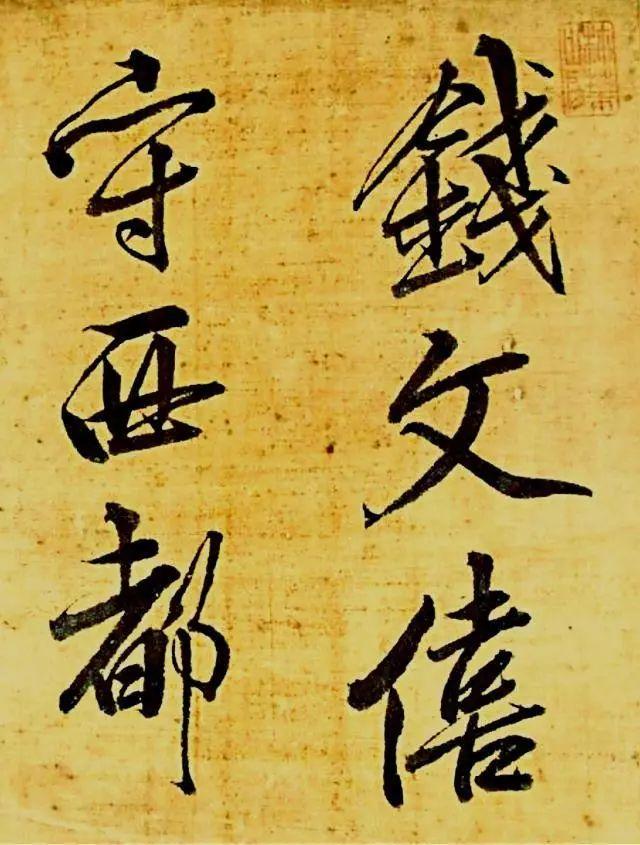 錢文僖
守西都